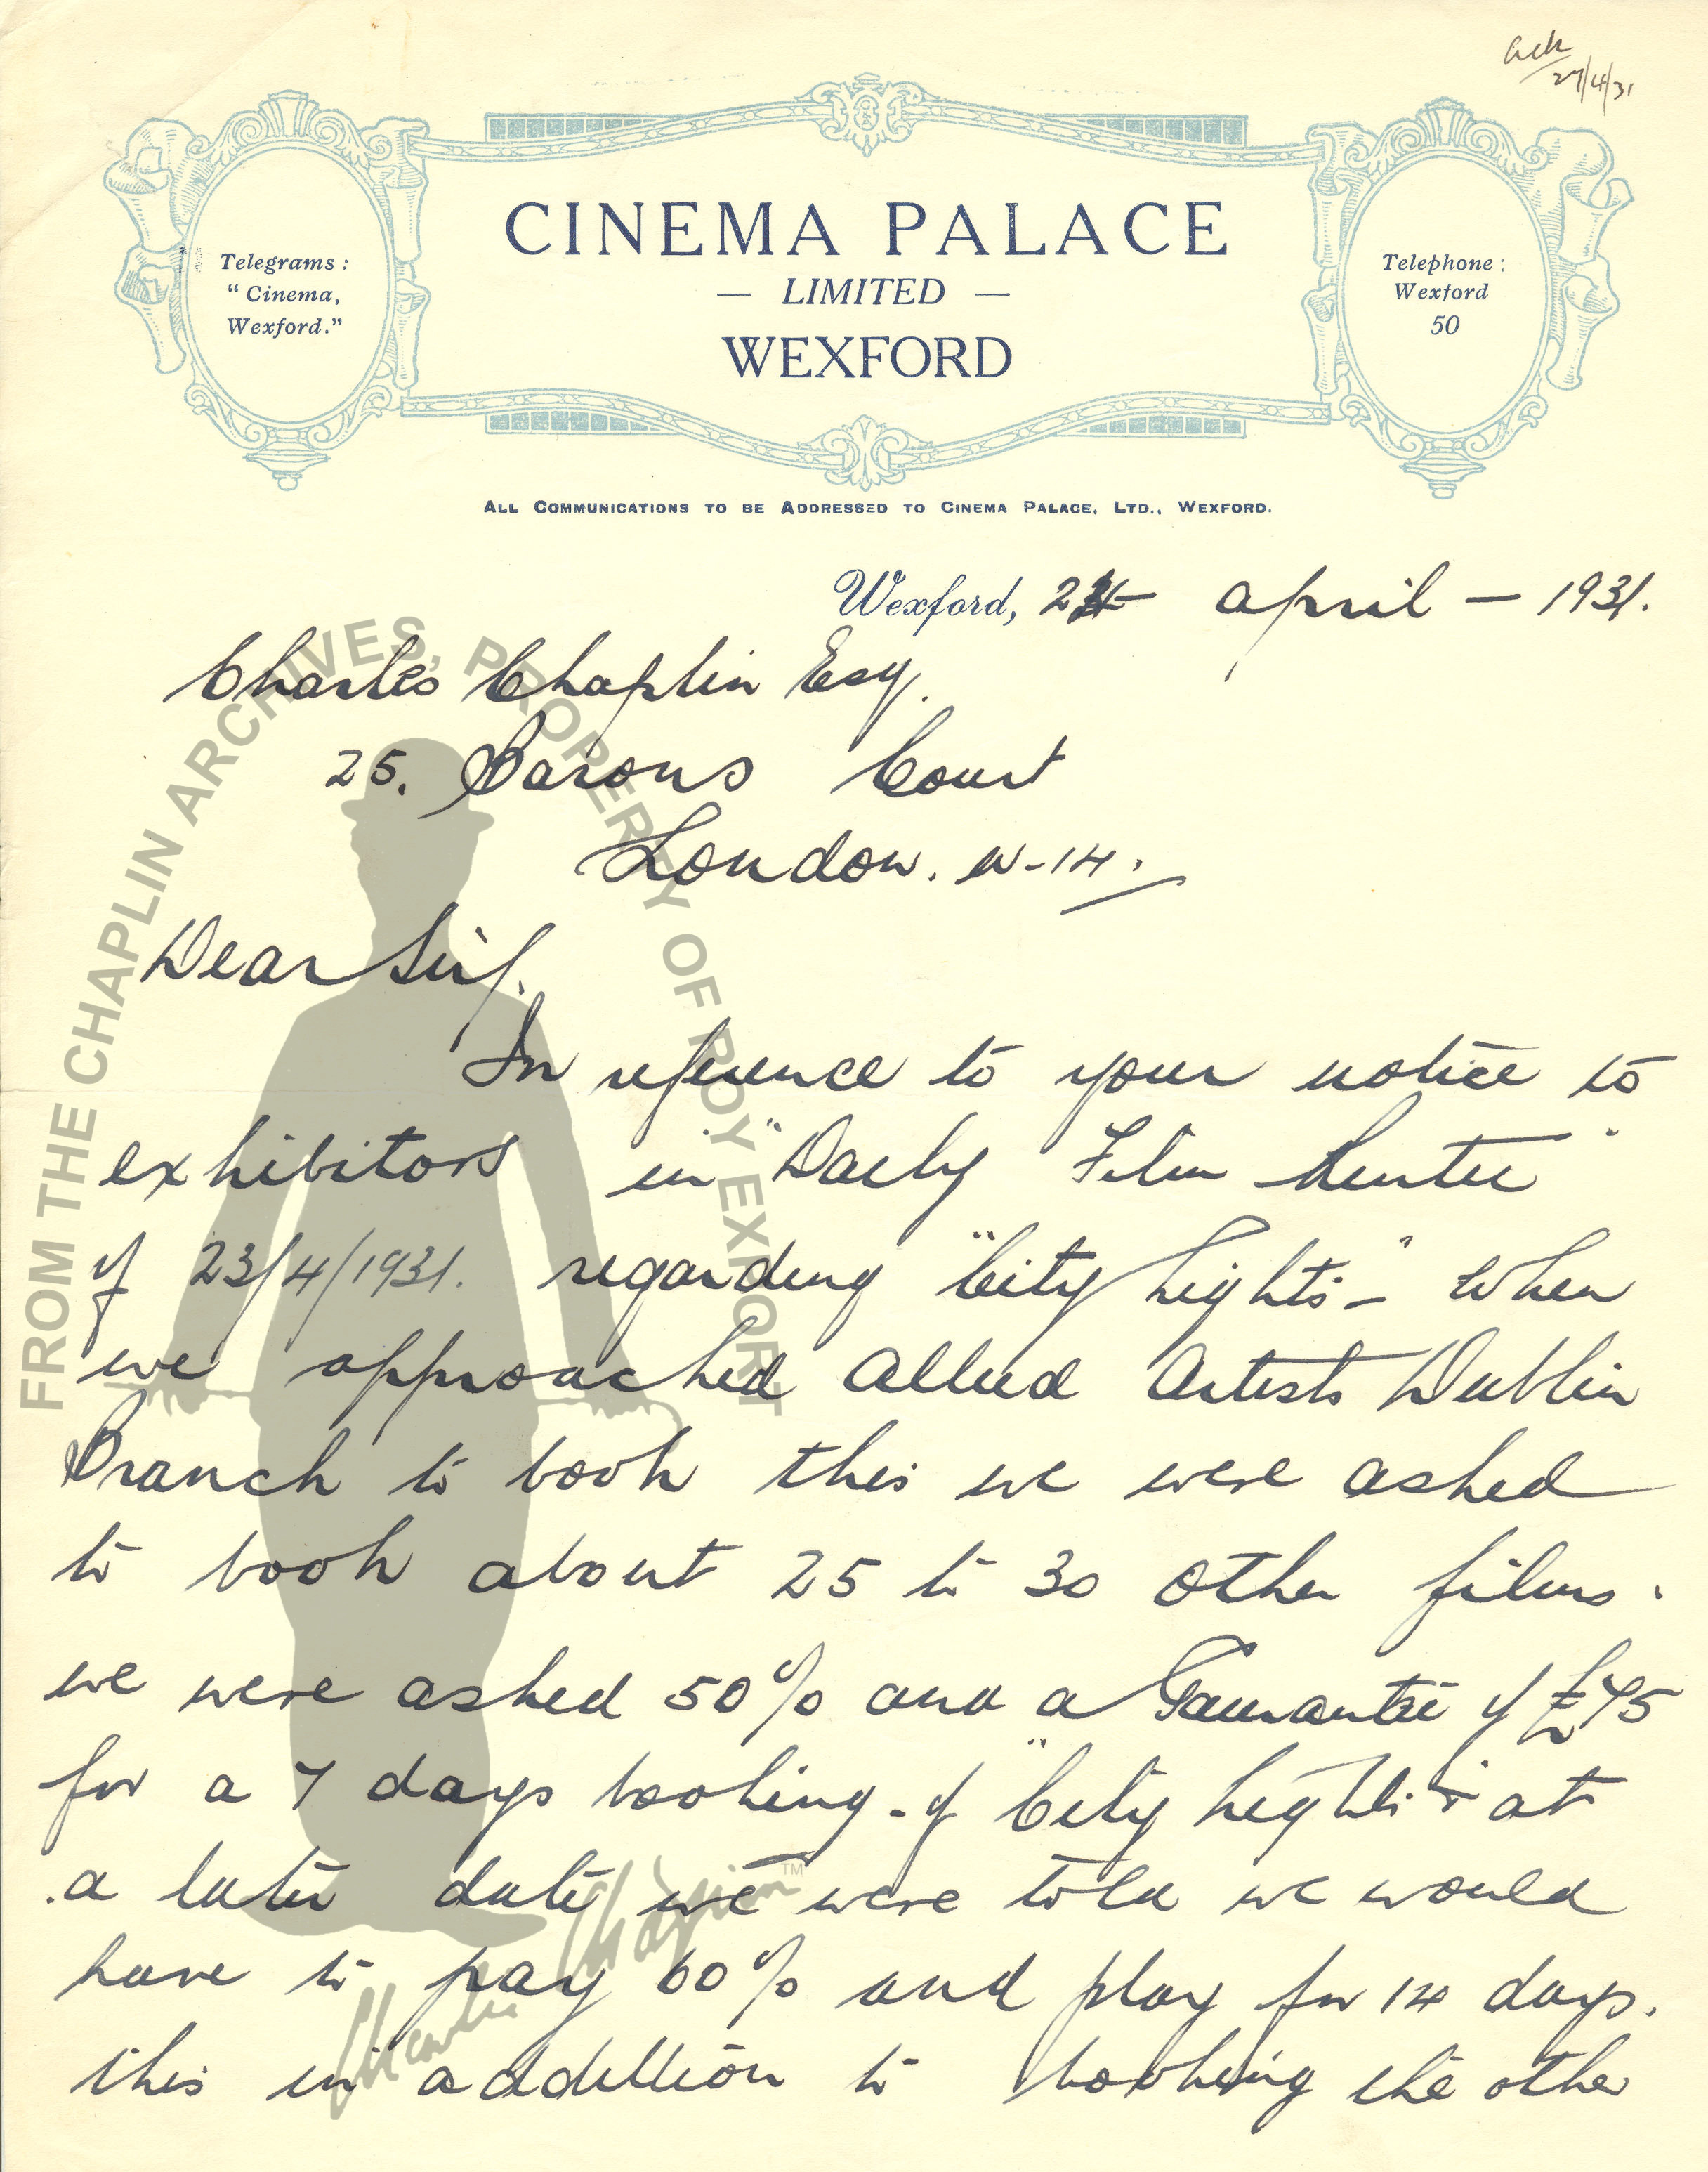 ack
27/4/31
CINEMA PALACE
— LIMITED —
WEXFORD
Telegrams :
“ Cinema,
Wexford.”
Telephone :
Wexford
50
ALL COMMUNICATIONS TO BE ADDRESSED TO CINEMA PALACE, LTD., WEXFORD.
Wexford, 24 April — 1931.
Charles Chaplin Esq.
25. Barons Court
London. W-14.
Dear Sir,
In reference to your notice to
exhibitors in "Daily Film Renter"
of 23/4/1931. regarding "City Lights-" When
we approached Allied Artists Dublin
Branch to book this we were asked
to book about 25 to 30 other films.
we were asked 50% and a Guarantee of £75
for a 7 days booking - of "City Lights" at
a later date we were told we would
have to pay 60% and play for 14 days.
this in addition to booking the other
FROM THE CHAPLIN ARCHIVES, PROPERTY OF ROY EXPORT
Charlie Chaplin ™